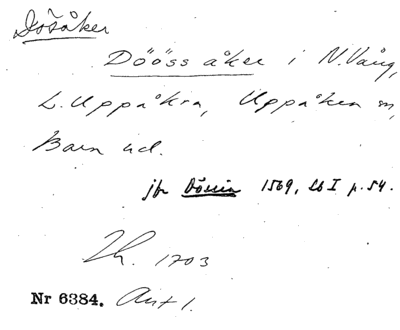 Dösåker
Dööss åker i N. Vång,
L. Uppåkra, Uppåkra sn,
Bara hd.
jfr Dössin 1569, LbI p. 54.
Lh. 1703
Nr 6384. Ant 1.